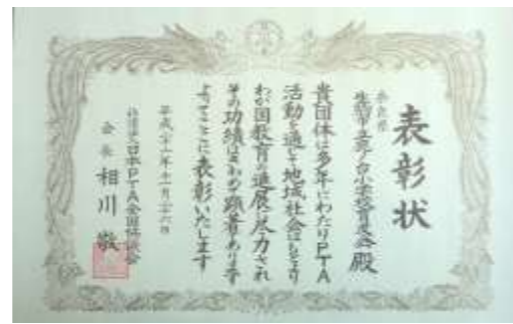 表彰状
奈良県
生駒市立あすか野小学校育友会 殿
貴団体は多年にわたりPTA
活動を通じ地域社会はもとより
わが国教育の進展に尽力され
その功績はきわめて顕著であります
よってここに表彰いたします
平成二十一年十一月二十六日
社団法人日本PTA全国協議会
会長 相川 敬